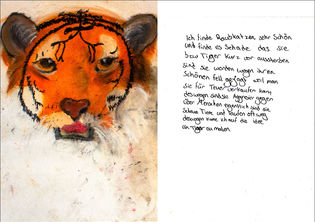 Ich finde Raubkatzen sehr Schön
und finde es Schade das sie
bzw Tigger kurz vor aussterben
sind sie werden wegen ihren
Schönen fell gejagt weil man
sie für Teuer verkaufen kann
deswegen sind sie Aggresiv gegen
über Menschen eigentlich sind sie
Scheue Tiere und laufen oft weg
deswegen kam ich auf die idee
ein Tigger zu malen